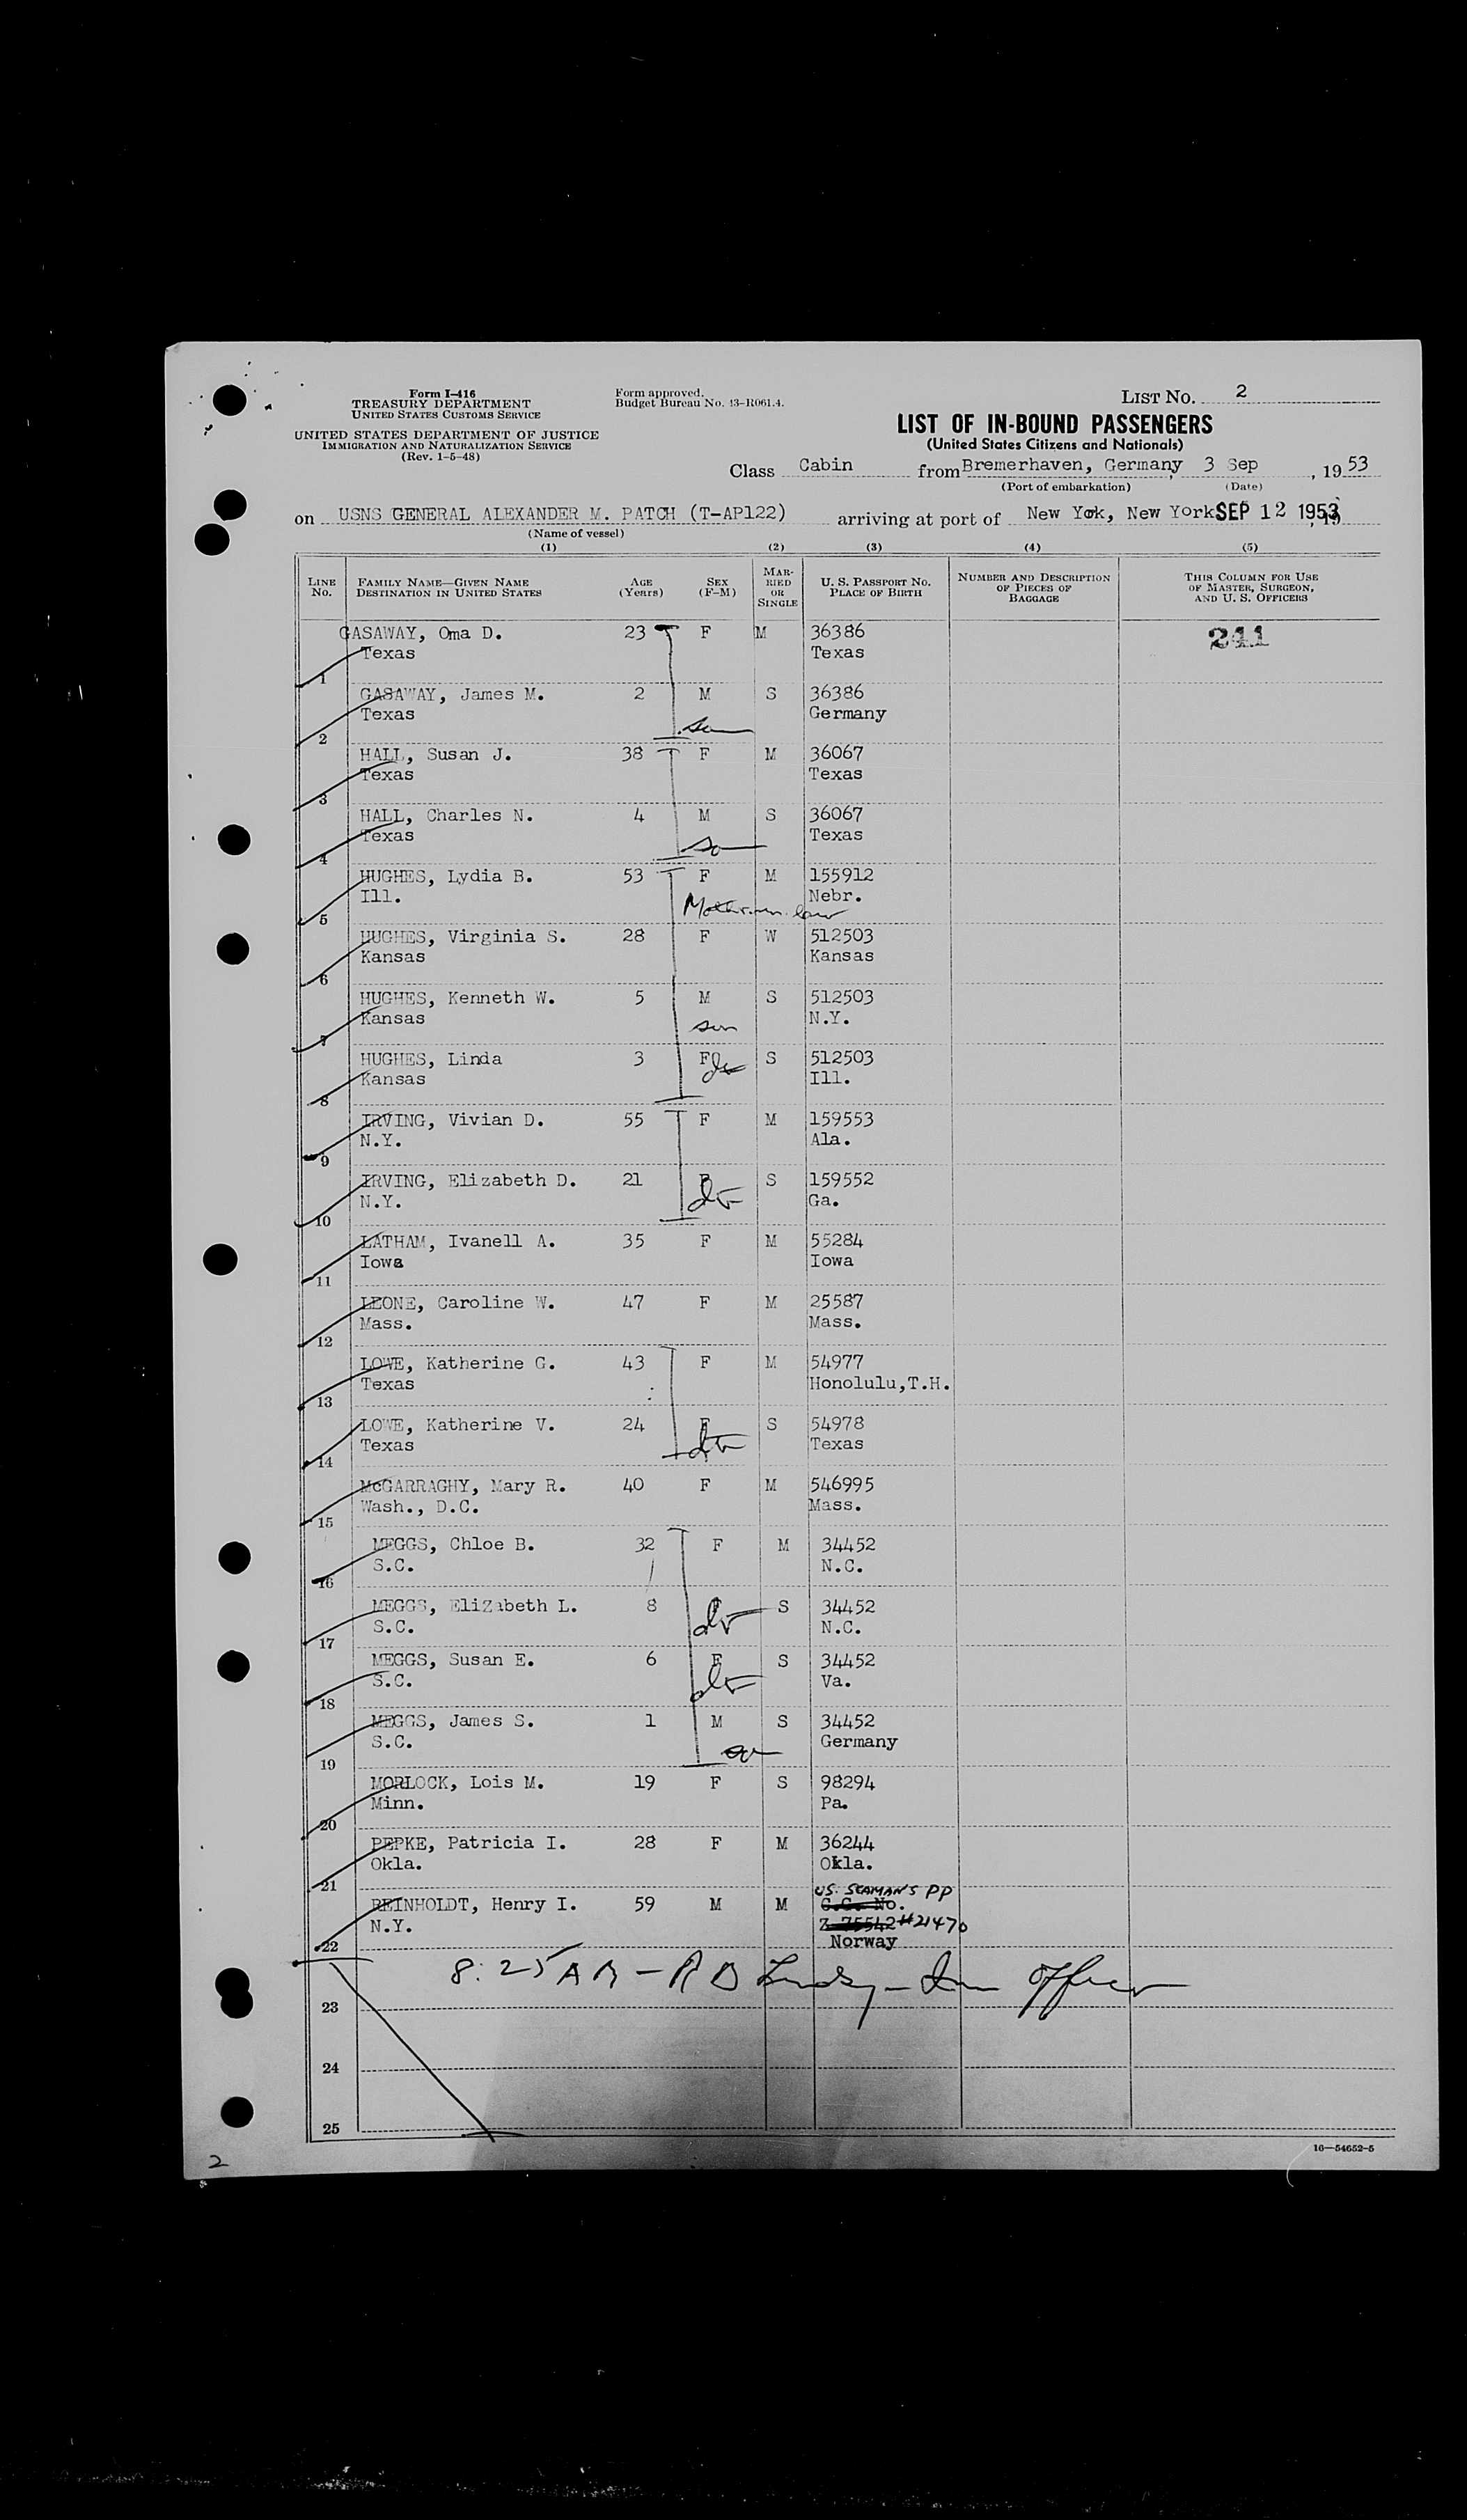 Form I-416
TREASURY DEPARTMENT
UNITED STATES CUSTOMS SERVICE
UNITED STATES DEPARTMENT OF JUSTICE
IMMIGRATION AND NATURALIZATION SERVICE
(Rev. 1-5-48)
Form approved.
Budget Bureau No. 43-R061.4.
LIST No. 2
LIST OF IN-BOUND PASSENGERS
(United States Citizens and Nationals)
Class Cabin from Bremerhaven, Germany, 3 Sep, 1953
(Port of embarkation) (Date)
on USNS GENERAL ALEXANDER M. PATCH (T-AP122) arriving at port of New York, New York SEP 12 1953
(Name of vessel)
(1) (2) (3) (4) (5)
LINE No. FAMILY NAME—GIVEN NAME DESTINATION IN UNITED STATES AGE (Years) SEX (F-M) MARRIED OR SINGLE U. S. PASSPORT No. PLACE OF BIRTH NUMBER AND DESCRIPTION OF PIECES OF BAGGAGE THIS COLUMN FOR USE OF MASTER, SURGEON, AND U. S. OFFICERS
GASAWAY, Oma D. 23 F M 36386 241
1 Texas Texas
GASAWAY, James M. 2 M S 36386
2 Texas son Germany
HALL, Susan J. 38 F M 36067
3 Texas Texas
HALL, Charles N. 4 M S 36067
4 Texas son Texas
HUGHES, Lydia B. 53 F M 155912
5 Ill. Mother-in-law Nebr.
HUGHES, Virginia S. 28 F W 512503
6 Kansas Kansas
HUGHES, Kenneth W. 5 M S 512503
7 Kansas son N.Y.
HUGHES, Linda 3 F S 512503
8 Kansas Ill.
IRVING, Vivian D. 55 F M 159553
9 N.Y. Ala.
IRVING, Elizabeth D. 21 F S 159552
10 N.Y. Ga.
LATHAM, Ivanell A. 35 F M 55284
11 Iowa Iowa
LEONE, Caroline W. 47 F M 25587
12 Mass. Mass.
LOWE, Katherine G. 43 F M 54977
13 Texas Honolulu,T.H.
LOWE, Katherine V. 24 F S 54978
14 Texas Texas
McGARRAGHY, Mary R. 40 F M 546995
15 Wash., D.C. Mass.
MEGGS, Chloe B. 32 F M 34452
16 S.C. N.C.
MEGGS, Elizabeth L. 8 S 34452
17 S.C. N.C.
MEGGS, Susan E. 6 F S 34452
18 S.C. Va.
MEGGS, James S. 1 M S 34452
19 S.C. Germany
MORLOCK, Lois M. 19 F S 98294
20 Minn. Pa.
PEPKE, Patricia I. 28 F M 36244
21 Okla. Okla.
US. SEAMAN'S PP
REINHOLDT, Henry I. 59 M M C.C. No.
N.Y. Z-75542 #21470
22 Norway
8:25 AM - R D - Officer
23
24
25
16—54652-5
2